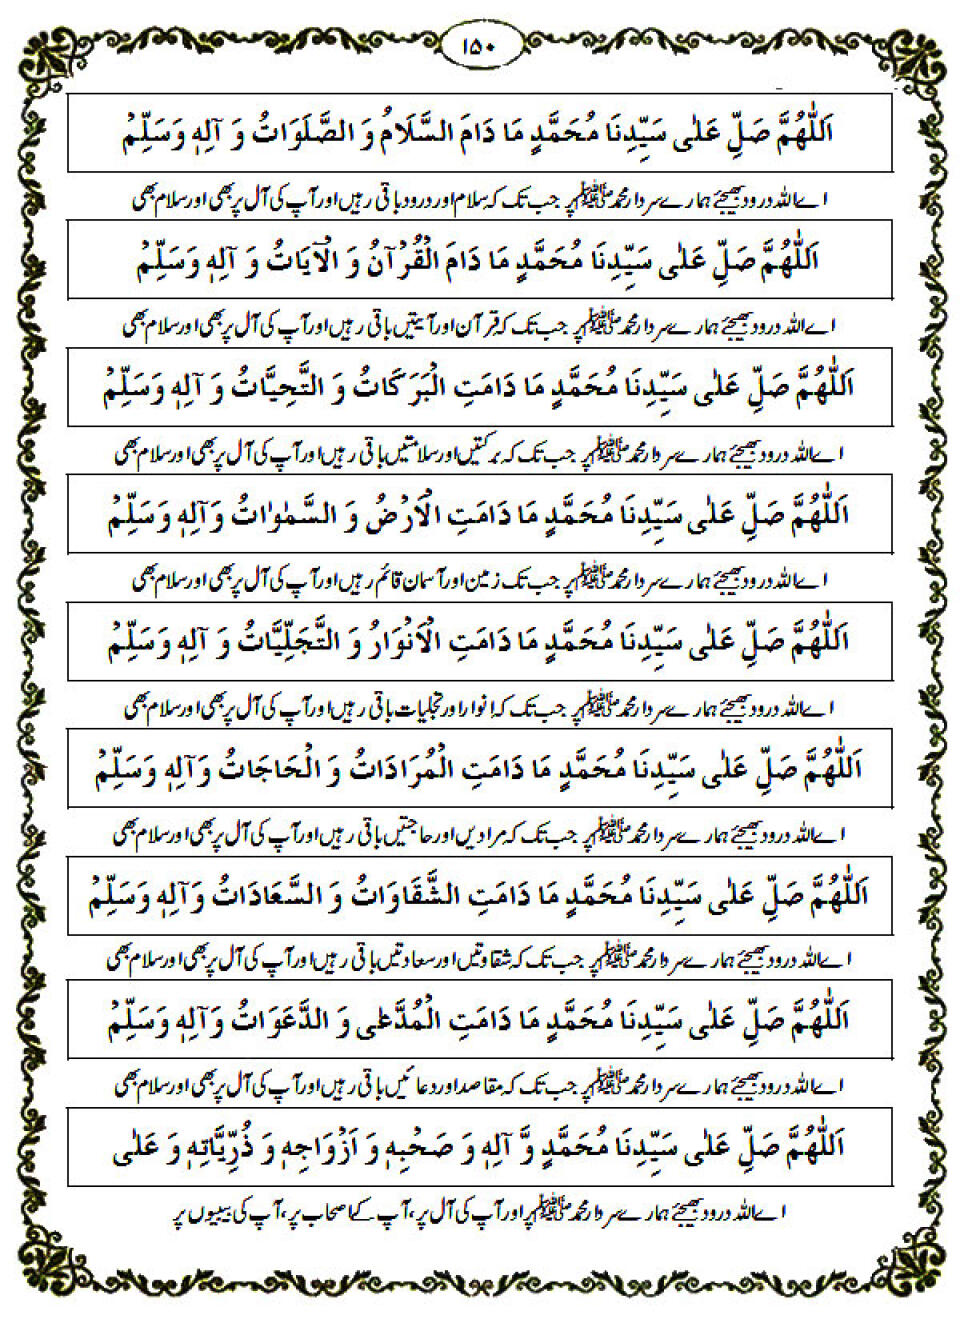 ۱۵۰
اَللّٰهُمَّ صَلِّ عَلٰى سَيِّدِنَا مُحَمَّدٍ مَا دَامَ السَّلَامُ وَ الصَّلَوَاتُ وَ آلِهٖ وَسَلِّمْ
اے اللہ درود بھیجئے ہمارے سردار محمد ﷺ پر جب تک کہ سلام اور درود باقی رہیں اور آپ کی آل پر بھی اور سلام بھی
اَللّٰهُمَّ صَلِّ عَلٰى سَيِّدِنَا مُحَمَّدٍ مَا دَامَ الْقُرْآنُ وَ الْآيَاتُ وَ آلِهٖ وَسَلِّمْ
اے اللہ درود بھیجئے ہمارے سردار محمد ﷺ پر جب تک کہ قرآن اور آیتیں باقی رہیں اور آپ کی آل پر بھی اور سلام بھی
اَللّٰهُمَّ صَلِّ عَلٰى سَيِّدِنَا مُحَمَّدٍ مَا دَامَتِ الْبَرَكَاتُ وَ التَّحِيَّاتُ وَ آلِهٖ وَسَلِّمْ
اے اللہ درود بھیجئے ہمارے سردار محمد ﷺ پر جب تک کہ برکتیں اور سلامتیں باقی رہیں اور آپ کی آل پر بھی اور سلام بھی
اَللّٰهُمَّ صَلِّ عَلٰى سَيِّدِنَا مُحَمَّدٍ مَا دَامَتِ الْاَرْضُ وَ السَّمٰوٰاتُ وَآلِهٖ وَسَلِّمْ
اے اللہ درود بھیجئے ہمارے سردار محمد ﷺ پر جب تک زمین اور آسمان قائم رہیں اور آپ کی آل پر بھی اور سلام بھی
اَللّٰهُمَّ صَلِّ عَلٰى سَيِّدِنَا مُحَمَّدٍ مَا دَامَتِ الْاَنْوَارُ وَ التَّجَلِّيَّاتُ وَ آلِهٖ وَسَلِّمْ
اے اللہ درود بھیجئے ہمارے سردار محمد ﷺ پر جب تک کہ انوار اور تجلیات باقی رہیں اور آپ کی آل پر بھی اور سلام بھی
اَللّٰهُمَّ صَلِّ عَلٰى سَيِّدِنَا مُحَمَّدٍ مَا دَامَتِ الْمُرَادَاتُ وَ الْحَاجَاتُ وَآلِهٖ وَسَلِّمْ
اے اللہ درود بھیجئے ہمارے سردار محمد ﷺ پر جب تک کہ مرادیں اور حاجتیں باقی رہیں اور آپ کی آل پر بھی اور سلام بھی
اَللّٰهُمَّ صَلِّ عَلٰى سَيِّدِنَا مُحَمَّدٍ مَا دَامَتِ الشَّقَاوَاتُ وَ السَّعَادَاتُ وَآلِهٖ وَسَلِّمْ
اے اللہ درود بھیجئے ہمارے سردار محمد ﷺ پر جب تک کہ شقاوتیں اور سعادتیں باقی رہیں اور آپ کی آل پر بھی اور سلام بھی
اَللّٰهُمَّ صَلِّ عَلٰى سَيِّدِنَا مُحَمَّدٍ مَا دَامَتِ الْمُدَّعٰى وَ الدَّعَوَاتُ وَآلِهٖ وَسَلِّمْ
اے اللہ درود بھیجئے ہمارے سردار محمد ﷺ پر جب تک کہ مقاصد اور دعائیں باقی رہیں اور آپ کی آل پر بھی اور سلام بھی
اَللّٰهُمَّ صَلِّ عَلٰى سَيِّدِنَا مُحَمَّدٍ وَّ آلِهٖ وَ صَحْبِهٖ وَ اَزْوَاجِهٖ وَ ذُرِّيَّاتِهٖ وَ عَلٰى
اے اللہ درود بھیجئے ہمارے سردار محمد ﷺ پر اور آپ کی آل پر، آپ کے اصحاب پر، آپ کی بیبیوں پر